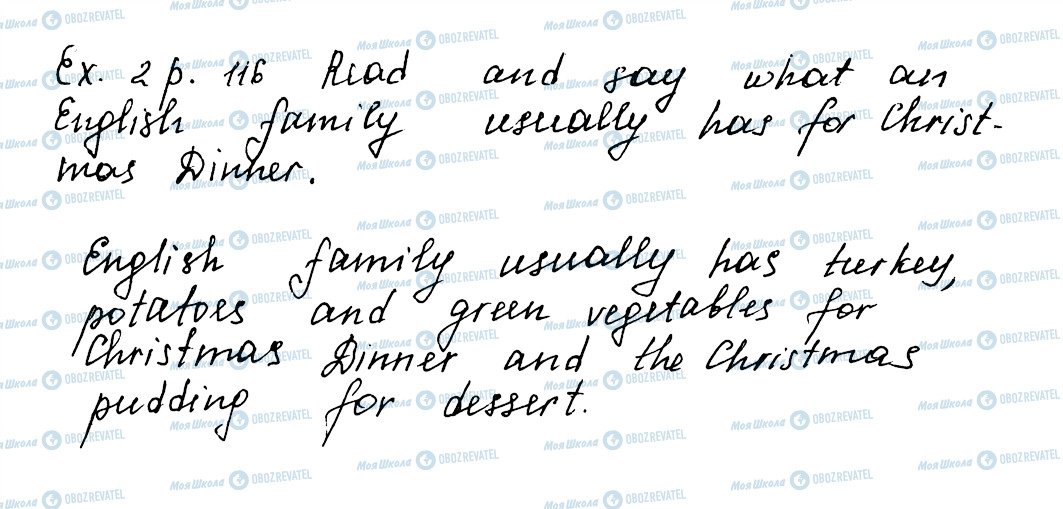 Ex. 2 p. 116 Read and say what an
English family usually has for Christ-
mas Dinner.
English family usually has turkey,
potatoes and green vegetables for
Christmas Dinner and the Christmas
pudding for dessert.